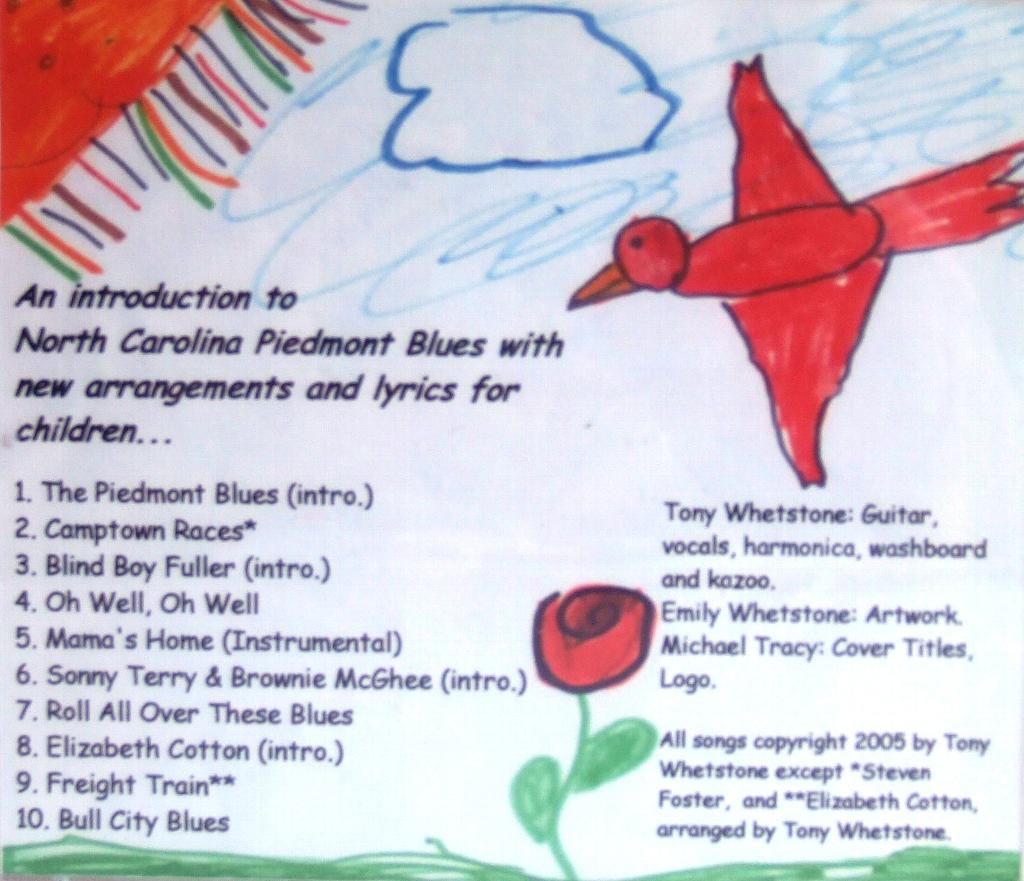 An introduction to
North Carolina Piedmont Blues with
new arrangements and lyrics for
children...
1. The Piedmont Blues (intro.)
2. Camptown Races*
3. Blind Boy Fuller (intro.)
4. Oh Well, Oh Well
5. Mama's Home (Instrumental)
6. Sonny Terry & Brownie McGhee (intro.)
7. Roll All Over These Blues
8. Elizabeth Cotton (intro.)
9. Freight Train**
10. Bull City Blues
Tony Whetstone: Guitar,
vocals, harmonica, washboard
and kazoo.
Emily Whetstone: Artwork.
Michael Tracy: Cover Titles,
Logo.
All songs copyright 2005 by Tony
Whetstone except *Steven
Foster, and **Elizabeth Cotton,
arranged by Tony Whetstone.